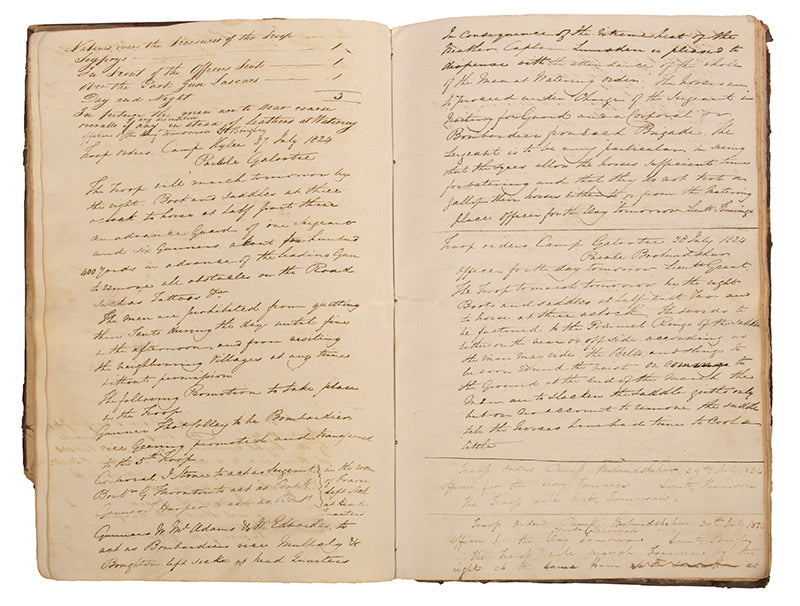 over the Treasures of the Troop 1
1
In Front of the Officers Tent 1
Over the Park Gun Lascars 1
Day and Night 3
In future the men are to wear coarse
overalls if any in stead of Leathers at Watering
Officer of the day tomorrow Lt Bingley
Troop orders Camp 27 July 1824
Parole Galoatee
The Troop will march tomorrow by
the right. Boot and Saddles at three
o'clock to horse at half past three
an advance Guard of one Sergeant
and six Gunners about four hundred
400 yards in advance of the leading Gun
to remove all obstacles on the Road
such as Tattoos &c
The men are prohibited from quitting
their Tents during the day until five
in the afternoon and from visiting
the neighbouring Villages at any time
without permission
The following Promotion to take place
in the Troop
Gunner to be Bombardier
vice promoted and transferred
to the 5th Troop
Corporal J Stone to act as Sergeant
Bombr G Thornton to act as Corpl
Gunner J Harper to act as Bombr
in the room
of Fraser
left sick
at head
quarters
Gunners W McAdams & W Edwards to
act as Bombardiers vice &
left sick at Head Quarters
In Consequence of the extreme heat of the
Weather Captain Lumsden is pleased to
dispense with the attendance of the whole
of the Men at Watering order. The Horses are
to proceed under Charge of the Sergeant in
Waiting for Guard and a Corporal or
Bombardier from each Brigade. The
Sergeant is to be very particular in seeing
that the allow the horses sufficient time
for watering and that they do not trot or
gallop their horses either to or from the Watering
place Officer for the day tomorrow Lieut Timings
Troop orders Camp Galoatee 28 July 1824
Parole
Officer for the day tomorrow Lieut Grant
The Troop to march tomorrow by the right
Boots and saddles at half past two and
to horse at three o'clock. The swords to
be fastened to the Ring of the Saddle
either on the near or off side according as
the man may ride. The Belts and slings to
be worn round the waist on coming to
the Ground at the end of the march the
men are to slacken the saddle girths only
but on no account to remove the saddle
till the Horses have had time to Cool a
little
Troop orders Camp 29th July 1824
Officer for the day tomorrow Lieut
The Troop will halt tomorrow
Troop order Camp 30th July 1824
Officer for the day tomorrow Lieut Bingley
The Troop will march tomorrow by the
right at the same from as